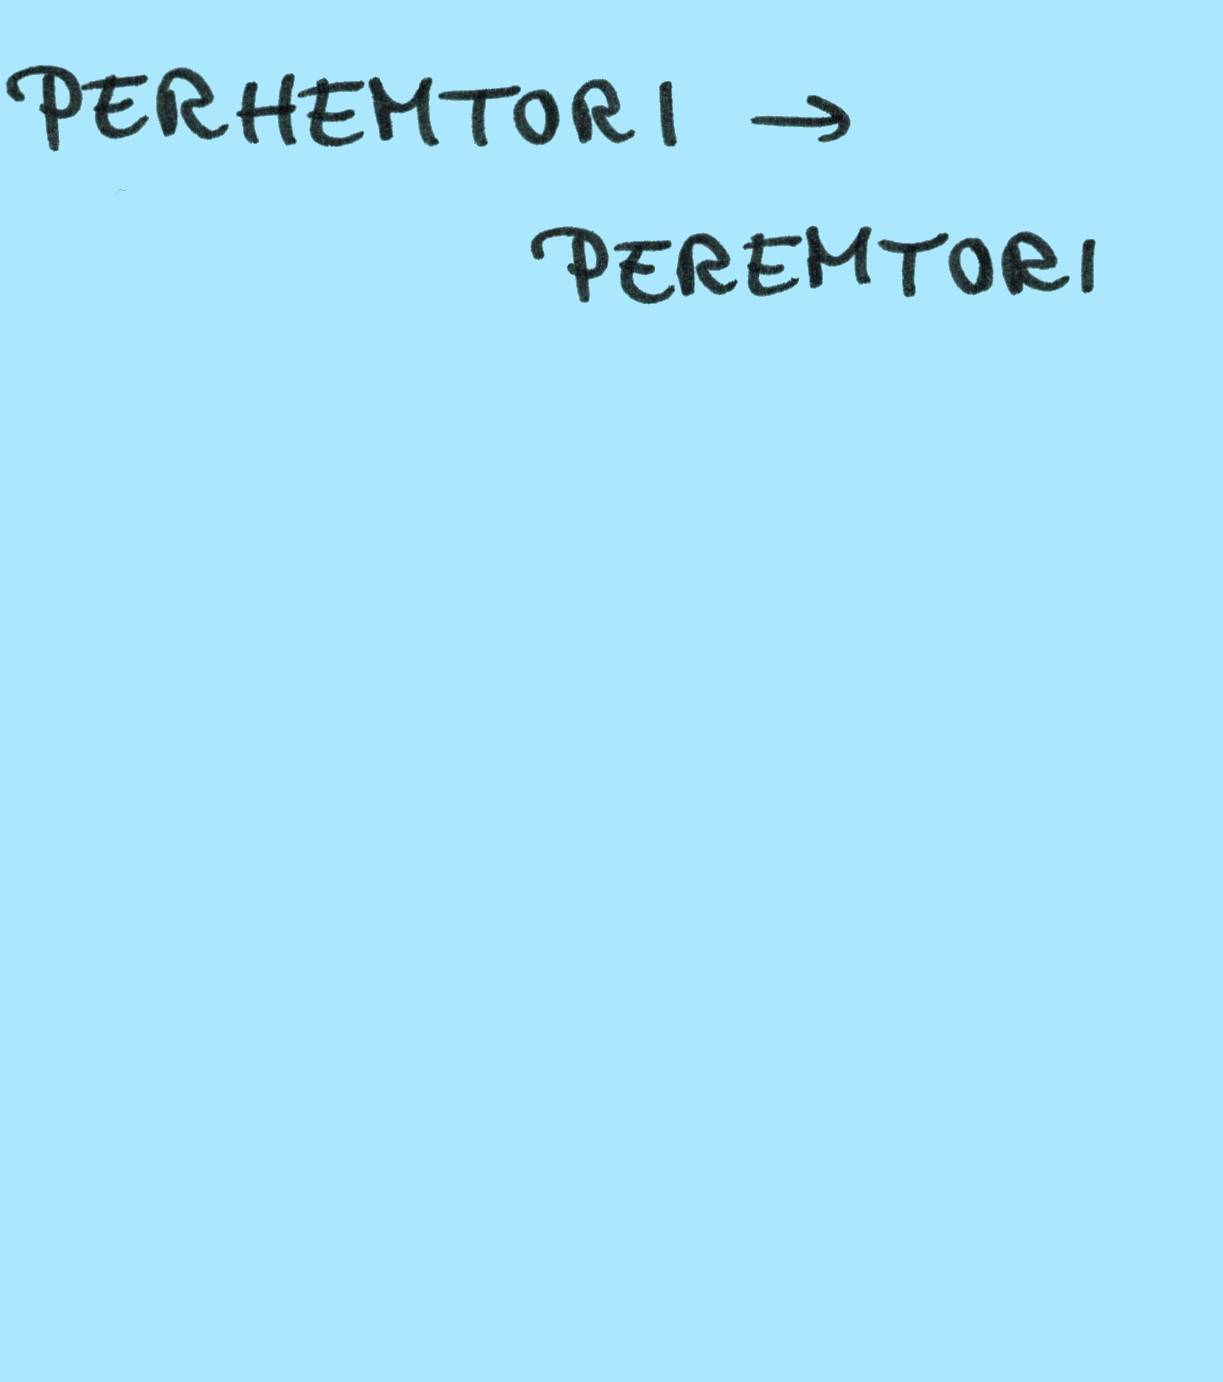 PERHEMTORI →
PEREMTORI